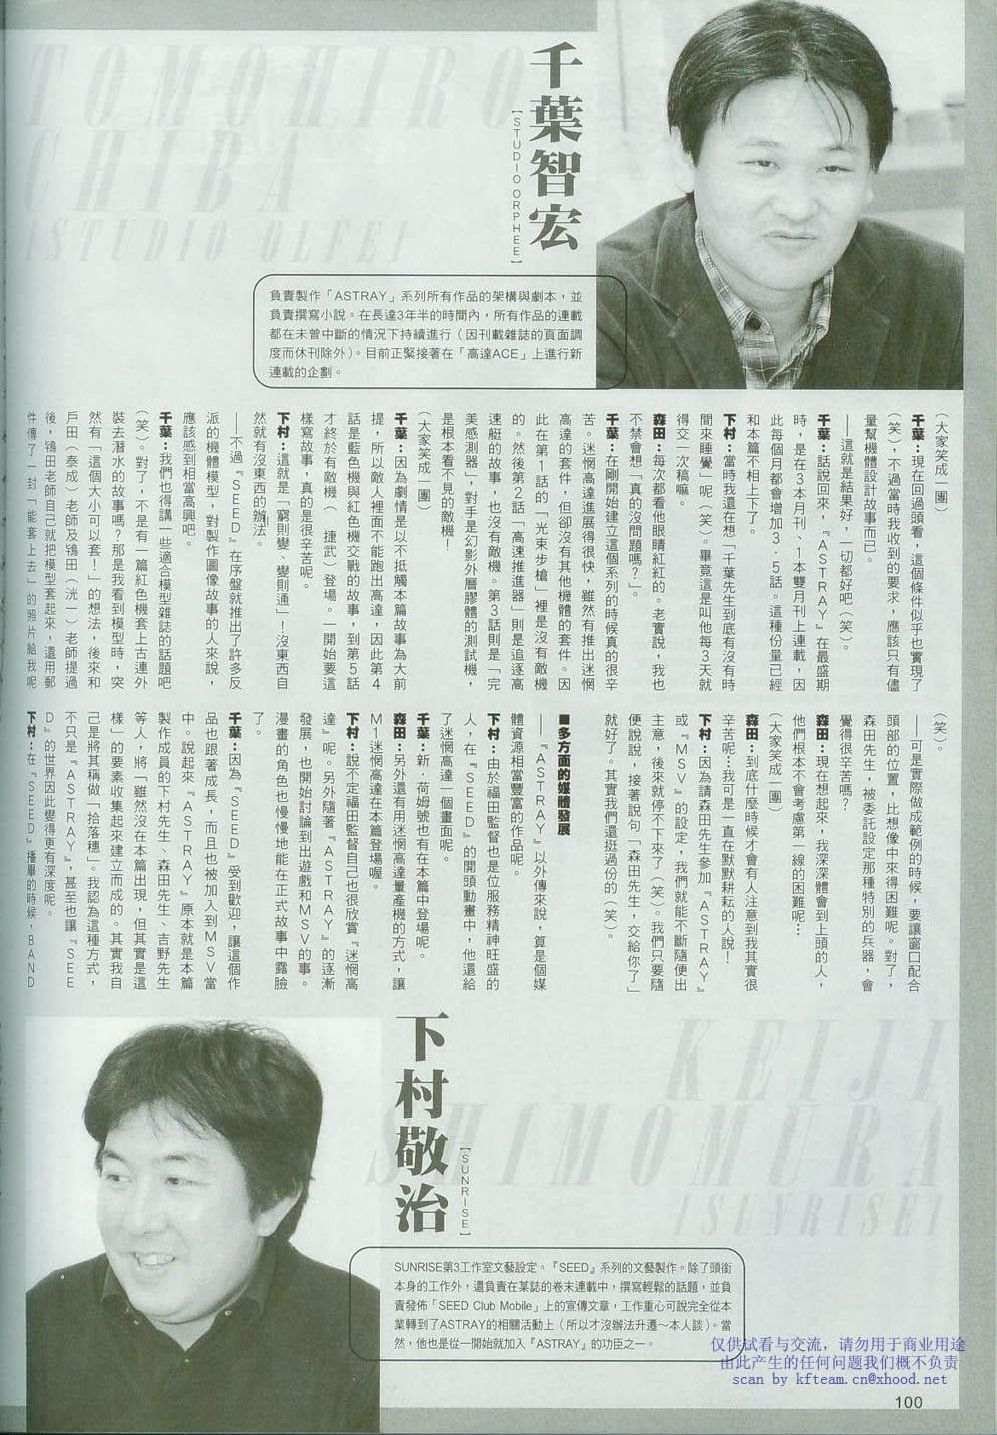 TOMOHIRO
CHIBA
千葉智宏
【STUDIO ORPHEE】
負責製作「ASTRAY」系列所有作品的架構與劇本，並
負責撰寫小說。在長達3年半的時間內，所有作品的連載
都在未曾中斷的情況下持續進行（因刊載雜誌的頁面調
度而休刊除外）。目前正緊接著在「高達ACE」上進行新
連載的企劃。
（大家笑成一團）
千葉：現在回過頭看，這個條件似乎也實現了
（笑），不過當時我收到的要求，應該只有儘
量幫機體設計故事而已。
──這就是結果好，一切都好吧（笑）。
千葉：話說回來，『ASTRAY』在最盛期
時，是在3本月刊、1本雙月刊上連載，因
此每個月都會增加3．5話。這種份量已經
和本篇不相上下了。
下村：當時我還在想「千葉先生到底有沒有時
間來睡覺」呢（笑）。畢竟這是叫他每3天就
得交一次稿嘛。
森田：每次都看他眼睛紅紅的。老實說，我也
不禁會想「真的沒問題嗎？」。
千葉：在剛開始建立這個系列的時候真的很辛
苦。迷惘高達進展得很快，雖然有推出迷惘
高達的套件，但卻沒有其他機體的套件。因
此在第1話的「光束步槍」裡是沒有敵機
的。然後第2話「高速推進器」則是追逐高
速艇的故事，也沒有敵機。第3話則是「完
美感測器」，對手是幻影外層膠體的測試機，
是根本看不見的敵機！
（大家笑成一團）
千葉：因為劇情是以不抵觸本篇故事為大前
提，所以敵人裡面不能跑出高達，因此第4
話是藍色機與紅色機交戰的故事，到第5話
才終於有敵機（ 捷武）登場。一開始要這
樣寫故事，真的是很辛苦呢。
下村：這就是「窮則變、變則通」！沒東西自
然就有沒東西的辦法。
──不過『SEED』在序盤就推出了許多反
派的機體模型，對製作圖像故事的人來說，
應該感到相當高興吧。
千葉：我們也得講一些適合模型雜誌的話題吧
（笑）。對了，不是有一篇紅色機套上古連外
裝去潛水的故事嗎？那是我看到模型時，突
然有「這個大小可以套！」的想法，後來和
戶田（泰成）老師及鴇田（洸一）老師提過
後，鴇田老師自己就把模型套起來，還用郵
件傳了一封「能套上去」的照片給我呢
（笑）。
──可是實際做成範例的時候，要讓窗口配合
頭部的位置，比想像中來得困難呢。對了，
森田先生，被委託設定那種特別的兵器，會
覺得很辛苦嗎？
森田：現在想起來，我深深體會到上頭的人，
他們根本不會考慮第一線的困難呢…
（大家笑成一團）
森田：到底什麼時候才會有人注意到我其實很
辛苦呢…我可是一直在默默耕耘的人說！
下村：因為請森田先生參加『ASTRAY』
或『MSV』的設定，我們就能不斷隨便出
主意，後來就停不下來了（笑）。我們只要隨
便說說，接著說句「森田先生，交給你了」
就好了。其實我們還挺過份的（笑）。
■多方面的媒體發展
──『ASTRAY』以外傳來說，算是個媒
體資源相當豐富的作品呢。
下村：由於福田監督也是位服務精神旺盛的
人，在『SEED』的開頭動畫中，他還給
了迷惘高達一個畫面呢。
千葉：新．荷姆號也有在本篇中登場呢。
森田：另外還有用迷惘高達量產機的方式，讓
M1迷惘高達在本篇登場喔。
下村：說不定福田監督自己也很欣賞『迷惘高
達』呢。另外隨著『ASTRAY』的逐漸
發展，也開始討論到出遊戲和MSV的事。
漫畫的角色也慢慢地能在正式故事中露臉
了。
千葉：因為『SEED』受到歡迎，讓這個作
品也跟著成長，而且也被加入到MSV當
中。說起來『ASTRAY』原本就是本篇
製作成員的下村先生、森田先生、吉野先生
等人，將「雖然沒在本篇出現，但其實是這
樣」的要素收集起來建立而成的。其實我自
己是將其稱做「拾落穗」。我認為這種方式，
不只是『ASTRAY』，甚至也讓『SEE
D』的世界因此變得更有深度呢。
下村：在『SEED』播畢的時候，BAND
KEIJI
SHIMOMURA
[SUNRISE]
下村敬治
【SUNRISE】
SUNRISE第3工作室文藝設定。『SEED』系列的文藝製作。除了頭銜
本身的工作外，還負責在某誌的卷末連載中，撰寫輕鬆的話題，並負
責發佈「SEED Club Mobile」上的宣傳文章，工作重心可說完全從本
業轉到了ASTRAY的相關活動上（所以才沒辦法升遷～本人談）。當
然，他也是從一開始就加入『ASTRAY』的功臣之一。
仅供试看与交流，请勿用于商业用途
由此产生的任何问题我们概不负责
scan by kfteam.cn@xhood.net
100